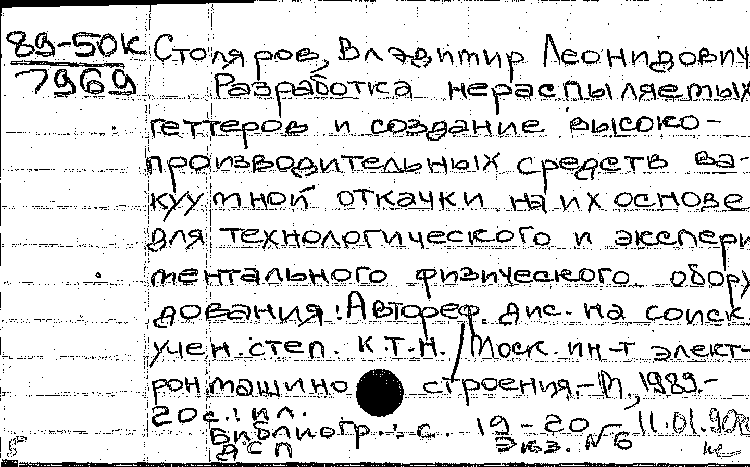 89-50К
7969
Столяров, Владимир Леонидович
Разработка нераспыляемых
геттеров и создание высоко-
производительных средств ва-
куумной откачки на их основе
для технологического и экспери
ментального физического обору
дования: Автореф. дис. на соиск.
учен. степ. к.т.н. / Моск. ин-т элект-
рон машино строения.- М., 1989.-
20с.: ил.
Библиогр.: с. 19-20
ДСП
Экз. №6
11.01.90